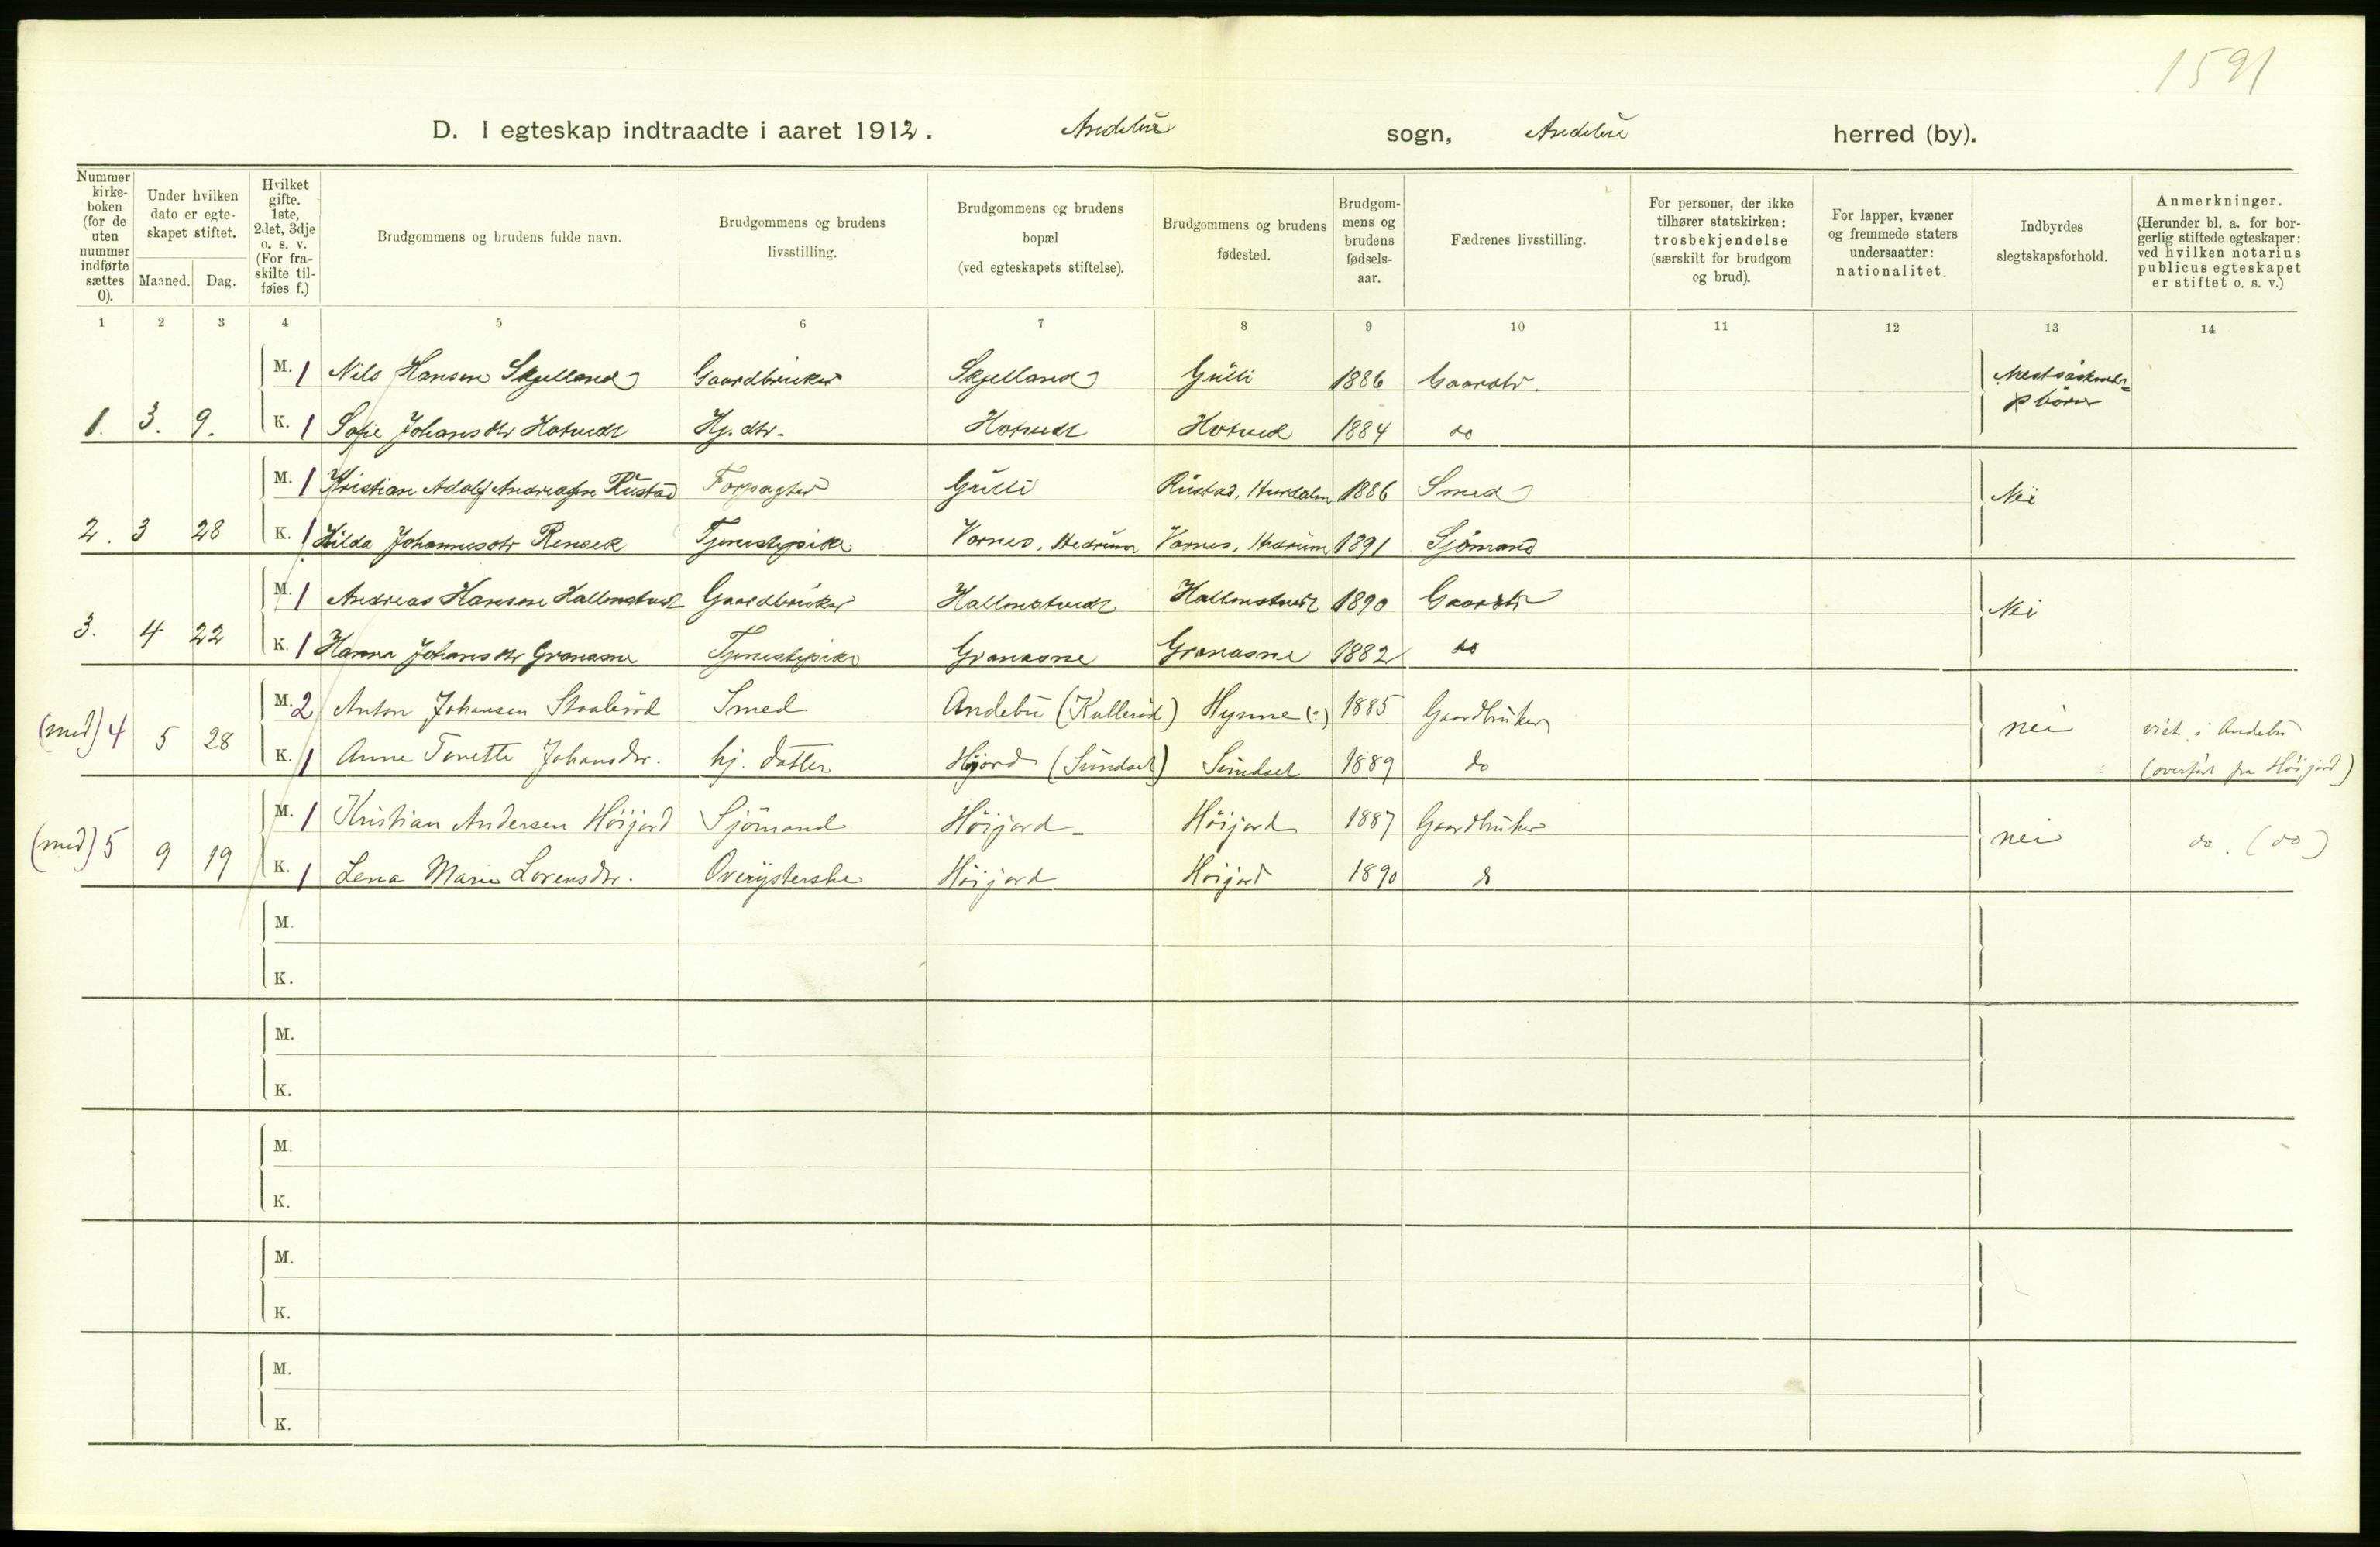 1591
D. I egteskap indtraadte i aaret 1912. Andebu sogn, Andebu herred (by).
Nummer kirke-boken (for de uten nummer indførte sættes 0).
Under hvilken dato er egte-skapet stiftet.
Maaned. Dag.
Hvilket gifte. 1ste, 2det, 3dje o. s. v. (For fra-skilte til-føies f.)
Brudgommens og brudens fulde navn.
Brudgommens og brudens livsstilling.
Brudgommens og brudens bopæl (ved egteskapets stiftelse).
Brudgommens og brudens fødested.
Brudgom-mens og brudens fødsels-aar.
Fædrenes livsstilling.
For personer, der ikke tilhører statskirken: trosbekjendelse (særskilt for brudgom og brud).
For lapper, kvæner og fremmede staters undersaatter: nationalitet.
Indbyrdes slegtskapsforhold.
Anmerkninger. (Herunder bl. a. for bor-gerlig stiftede egteskaper: ved hvilken notarius publicus egteskapet er stiftet o. s. v.)
1 2 3 4 5 6 7 8 9 10 11 12 13 14
M. 1 Nils Hansen Skjelland Gaardbruker Skjelland Gulli 1886 Gaardbr.
1. 3. 9. K. 1 Sofie Johansdtr Hotvedt Hj. dtr. Hotvedt Hotved 1884 do
M. 1 Kristian Adolf Andreasen Rustad Forpagter Gulli Rustad, Hurdalen 1886 Smed Nei
2. 3 28 K. 1 Hilda Johannesdtr Tjenestepike Varnes, Hedrum Varnes, Hedrum 1891 Sjömand
M. 1 Andreas Hansen Hallenstvedt Gaardbruker Hallenstvedt Hallenstvedt 1890 Gaardbr Nei
3. 4 22 K. 1 Hanna Johansdtr Granasne Tjenestepike Granasne Granasne 1882 do
M. 2 Anton Johansen Staalerød Smed Andebu (Kullerød) Hynne (?) 1885 Gaardbruker nei viet i Andebu
(med) 4 5 28 K. 1 Anne Tonette Johansdtr. hj. datter Høijord (Sundset) Sundset 1889 do (overført fra Høijord)
M. 1 Kristian Andersen Höijord Sjömand Höijord Höijord 1887 Gaardbruker nei do. (do)
(med) 5 9 19 K. 1 Lena Marie Lorensdtr. Overysterske Höijord Höijord 1890 do
M.
K.
M.
K.
M.
K.
M.
K.
M.
K.